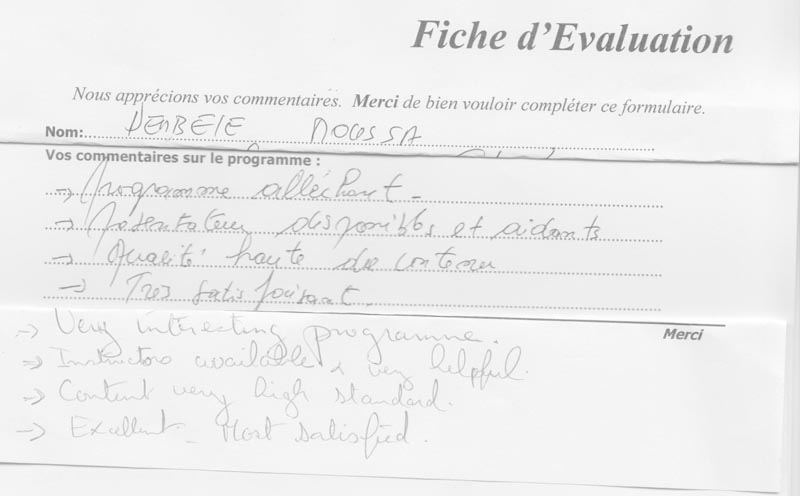 Fiche d'Evaluation
Nous apprécions vos commentaires. Merci de bien vouloir compléter ce formulaire.
Nom:
Vos commentaires sur le programme :
-> Programme alléchant -
-> Présentateurs disponibles et aidants
-> Qualité haute du contenu
-> Tres satisfaisant.
Merci
-> Very interesting programme.
-> Instructors available & very helpful.
-> Content very high standard.
-> Excellent - Most satisfied.